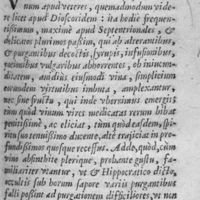 Vnum apud veteres, quemadmodum vide
re licet apud Dioscoridem: ita hodie frequen
tissimum, maximè apud Septentrionales, &
delicatos plurimos passim, qui ab alterantibus,
& purgantibus decoctis, syrupis, infusionibus,
venimus vulgaribus aborrentes, ob inicun-
ditatem, auidius eiusmodi vina, simplicium
eorumdem virtutibus imbuta, amplexantur,
nec sine fructu, qui inde vberrimus energis
cum quidem vinum vires medicatas rerum bibat
penitissimè, ac eliciat, tum quòd eædem, spi-
ritus sui tenuissimo ducente, altè traijciat in pro-
fundissimos quosque recessus. Adde, quòd, cùm
vini absinthite plerique, probante gustu, fa-
miliariter vtantur, vt & Hippocratico dicto,
occultè sub horum sapore varijs purgantibus
falli possint ad purgationem difficiliores, vt non